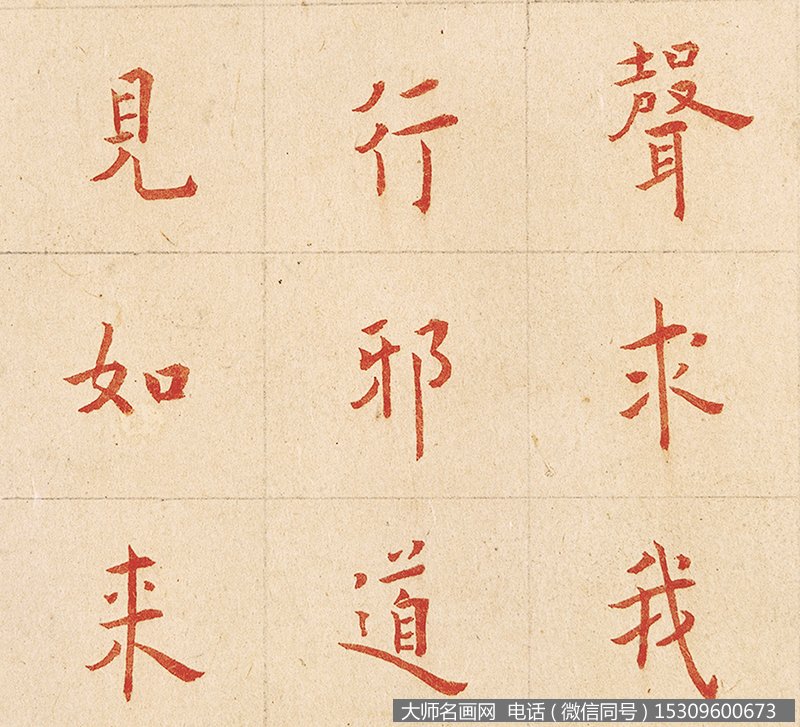 聲求我
行邪道
見如来
大师名画网 电话（微信同号）15309600673